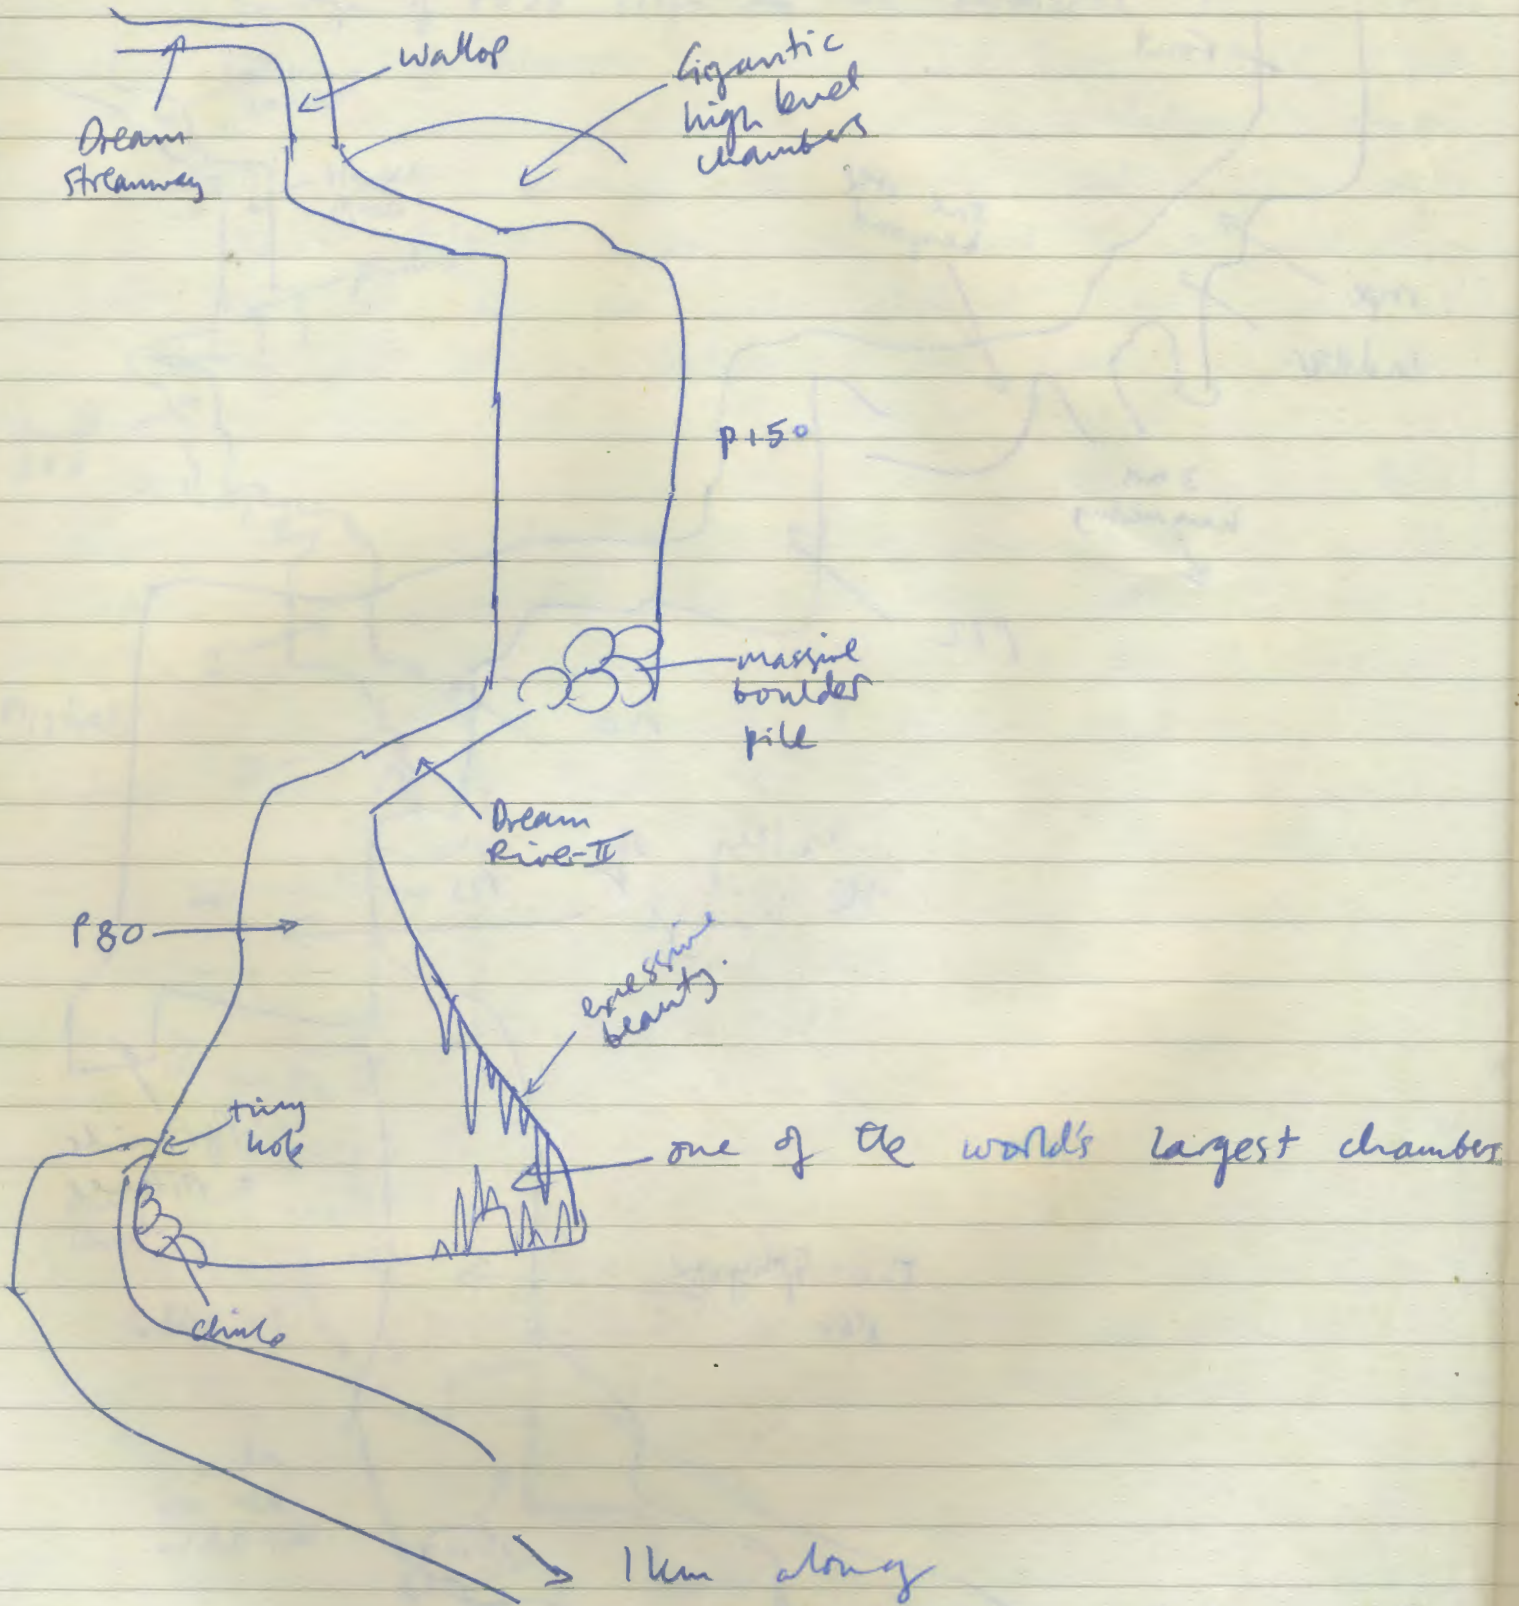 Wallop
Gigantic
high level
chambers
Dream
streamway
P150
massive
boulder
pile
Dream
River-II
P80
excessive
beauty.
tiny
hole
one of the world's largest chambers
climb
1km along